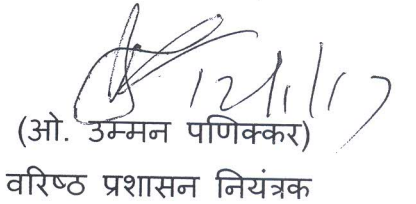 12/1/17
(ओ. उम्मन पणिक्कर)
वरिष्ठ प्रशासन नियंत्रक